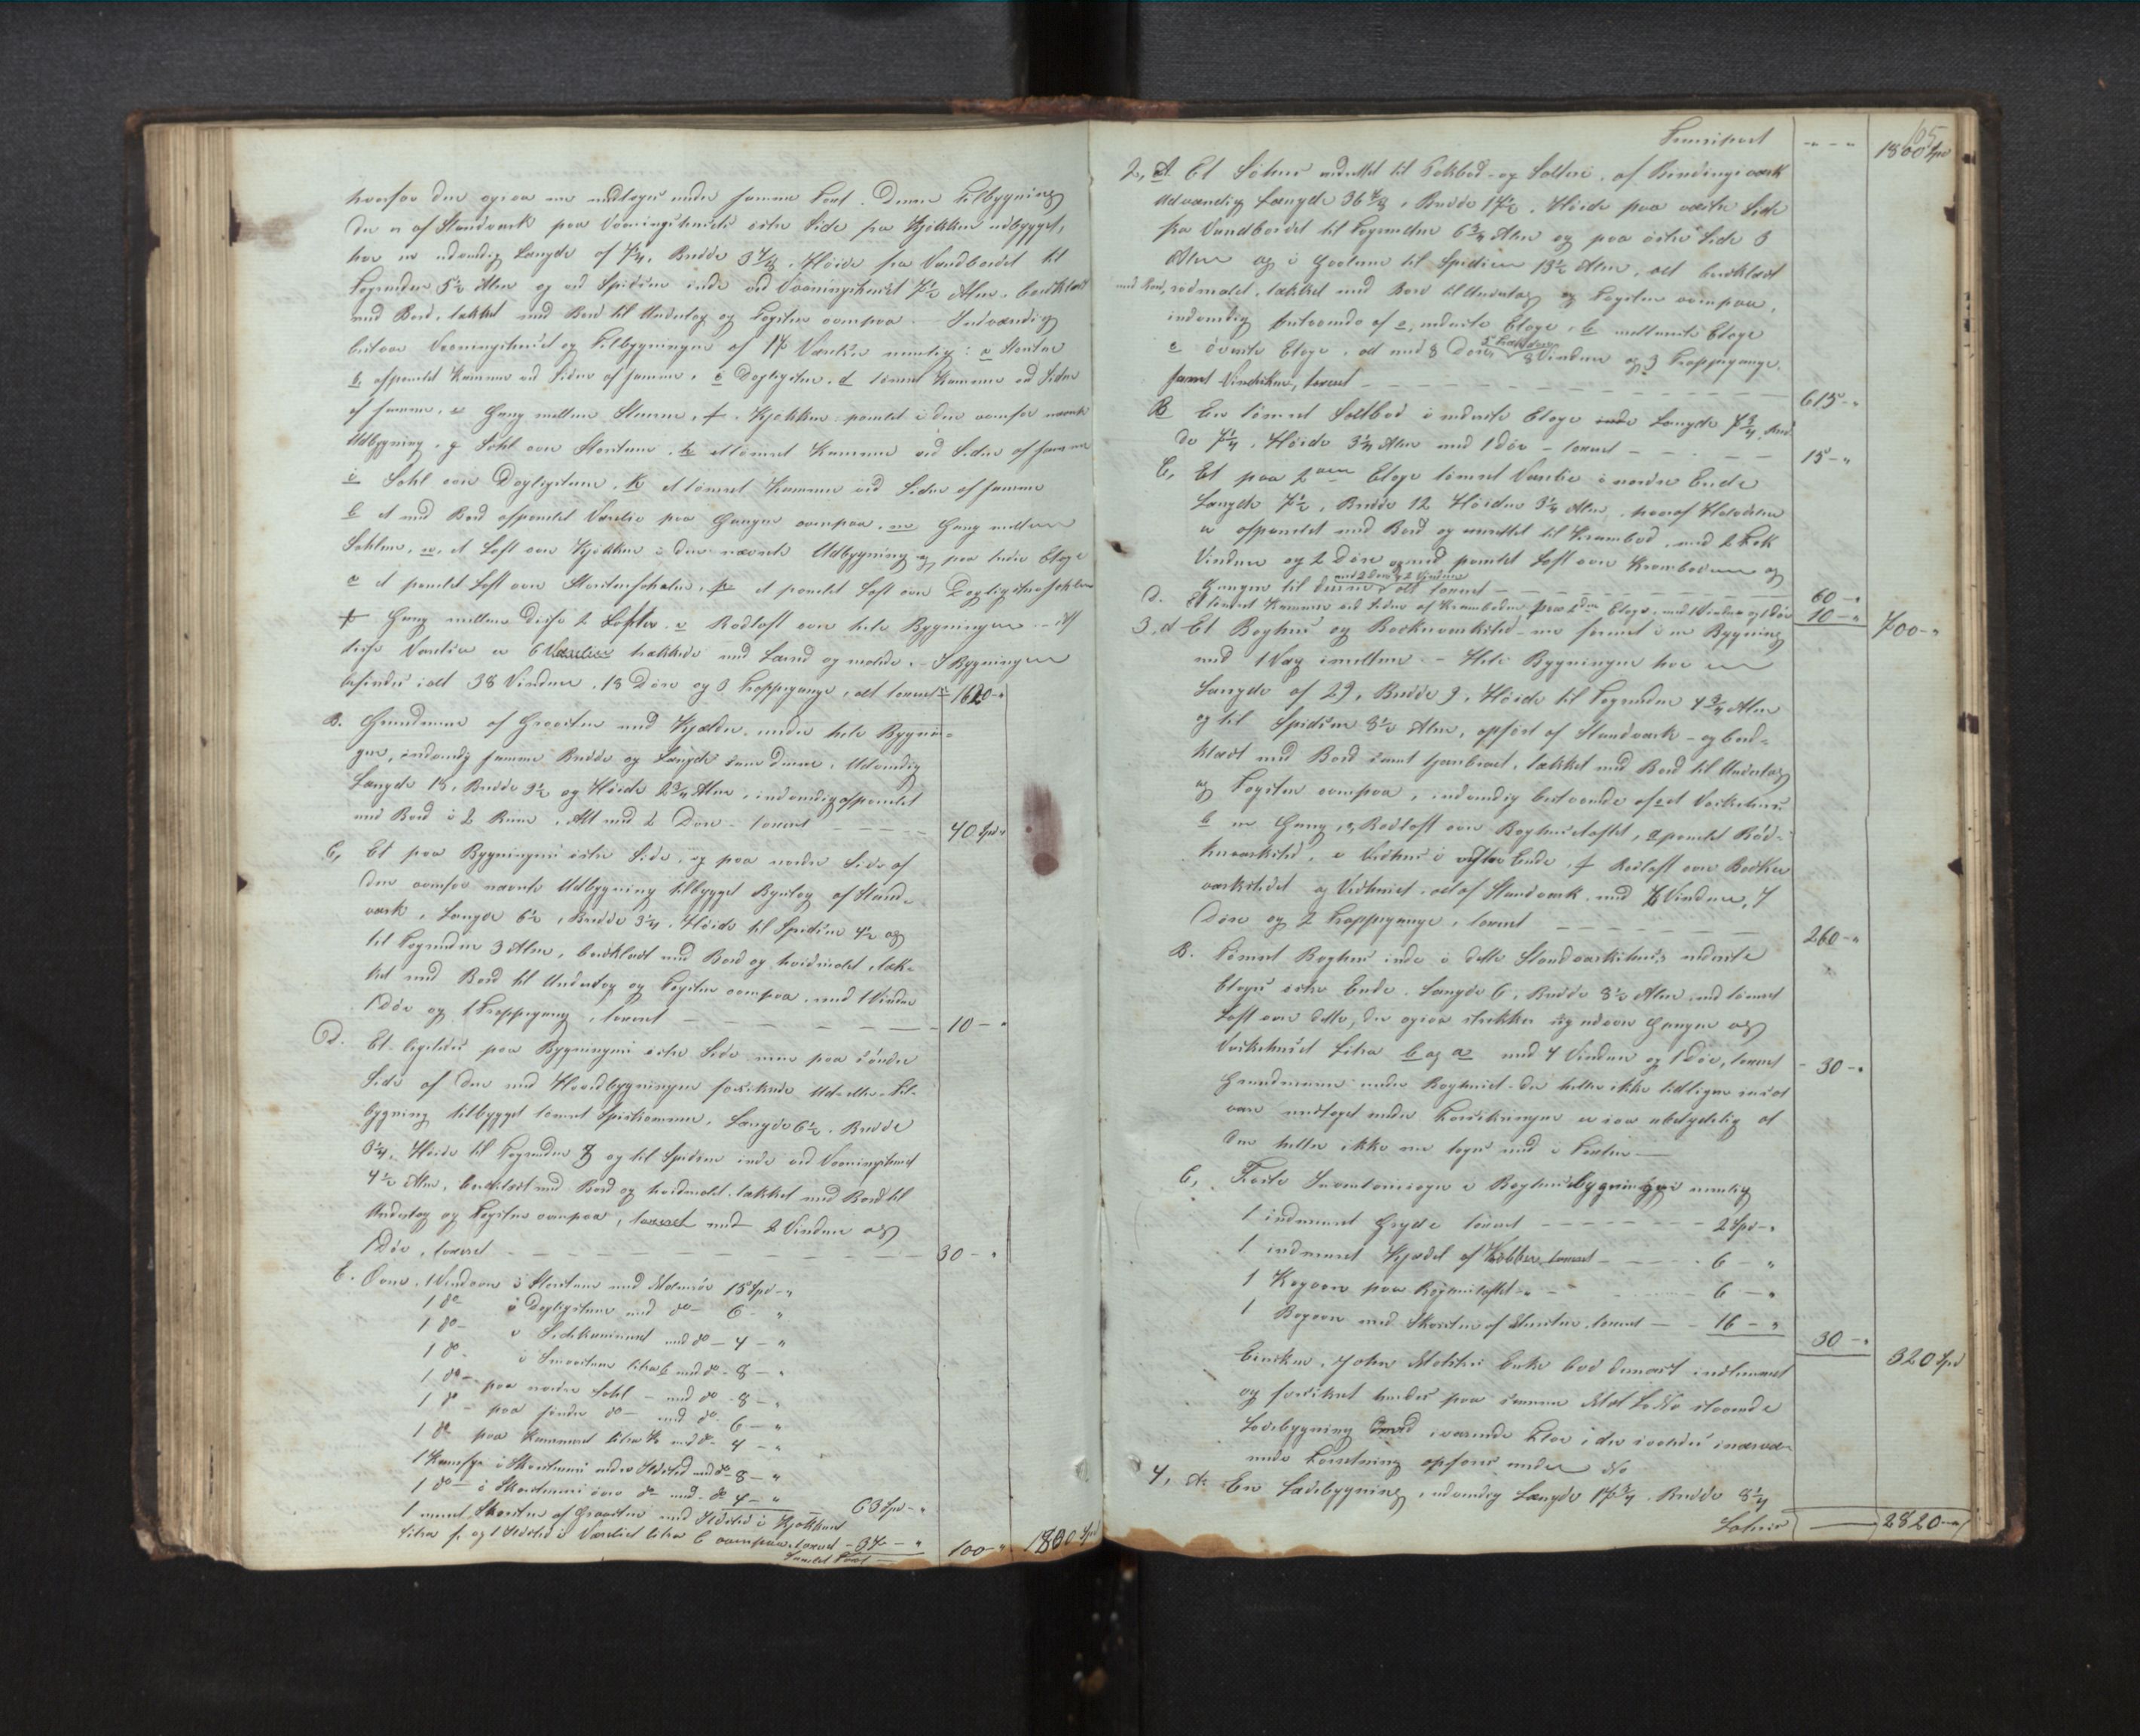 hvorfor den ogsaa er medtaget under samme Taxt. Denne Tilbygning
der er af Standværk paa Vaaningshusets østre Side for Kjøkken udbygget,
har en udvendig Længde af 7 3/4, Bredde 3 7/8, Høide fra Vandbordet til
Tagrenden 5 1/2 Alen og ved Spidsen inde ved Vaaningshuset 7 1/2 Alen, bordklædt
med Bord, tækket med Bord til Undertag og Tagsten ovenpaa. Indvendig
bestaar Vaaningshuset og Tilbygningen af 17 Værelser nemlig: a Storstue
b, afpanelet Kammer ved Siden af samme, c Dagligstue, d tømret Kammer ved Siden
af samme, e Gang mellem Stuerne, f, Kjøkken panelet i den ovenfor nævnte
Udbygning, g Sahl over Storstuen, h et tømret Kammer ved Siden af samme
i Sahl over Dagligstuen, k et tømret Kammer ved Siden af samme
l et med Bord afpanelet Værelse paa Gangen ovenpaa, m Gang mellem
Sahlene, n, et Loft over Kjøkken i den nævnte Udbygning og paa tredie Etage
o et panelet Loft over Storstuesahlen, p et panelet Loft over Dagligstuesahlen
Gang mellem disse 2 Lofter, Rødloft over hele Bygningen – Af
disse Værelser er 6 Værelser trækkede med Lærred og malede. – I Bygningen
befindes i alt 38 Vinduer, 18 Døre og 3 Trappegange, alt taxeret 1620 – "
B. Grundmuur af Graasteen med Kjælder under hele Bygnin-
gen, indvendig samme Bredde og Længde som denne. Udvendig
Længde 15, Bredde 9 1/2 og Høide 2 3/4 Alen, indvendig afpanelet
med Bord i 2 Rum, Alt med 2 Døre – taxeret 40 Spd "
C, Et paa Bygningens østre Side, og paa nordre Side af
den ovenfor nævnte Udbygning tilbygget Bislag af Stand-
værk, Længde 6 1/2, Bredde 3 1/4, Høide til Spidsen 4 1/2 og
til Tagrenden 3 Alen, bordklædt med Bord og hvidmalet, tæk-
ket med Bord til Undertag og Tagsten ovenpaa, med 1 Vindue
1 Dør og 1 Trappegang, taxeret 10 – "
D. Et ligeledes paa Bygningens østre Side men paa søndre
Side af den med Hovedbygningen forsikrede Ud- eller Til-
bygning tilbygget tømret Spisekammer, Længde 6 1/2, Bredde
3 1/4, Høide til Tagrenden 3 og til Spidsen inde ved Vaaningshuset
4 1/2 Alen, bordklædt med Bord og hvidmalet, tækket med Bord til
Undertag og Tagsten ovenpaa, taxeret med 2 Vinduer og
1 Dør, taxeret 30 – "
E. Ovne, 1 Vindovn i Storstuen med Malmrør 15 Spd – "
1 do i Dagligstuen med do – 6 – "
1 do – i Sidekammeret med do – 4 – "
1 do – i litra b med do – 8 – "
1 do – paa nordre Sahl – med do – 8 – "
1 do – paa søndre do – med do – 6 – "
1 do paa Kammeret litra k med do – 4 – "
1 i Skorstenen under Ildsted med do – 8 – "
1 do – i Skorstenen over do med do 4 – " 63 Spd – "
1 muret Skorsten af Graasten med Ildsted i Kjøkkenet
litra f, og 1 Ildsted i Værelset litra l ovenpaa, taxeret – 37 – " 100 – " 1800 Spd
Samlet Taxt
105
Transport – " – " 1800 Spd
2, A. Et Søhuus indrettet til Pakbod og Salteri, af Bindingsværk
Udvendig Længde 36 7/8, Bredde 17 1/2, Høide paa vestre Side
fra Vandbordet til Tagrenden 6 3/4 Alen og paa østre Side 8
Alen og i Gavlene til Spidsen 13 1/2 Alen, alt bordklædt
med Bord, rødmalet, tækket med Bord til Undertag og Tagsten ovenpaa,
indvendig bestaaende af a, nederste Etage, b mellemste Etage
c øverste Etage, alt med 8 Døre, 8 Vinduer og 3 Trappegange,
samt Vindehuus, taxeret 615 – "
B En tømret Saltbod i nederste Etage Længde 7 3/4, Bred-
de 7 1/4, Høide 3 1/4 Alen med 1 Dør – taxeret 15 – "
C, Et paa 2den Etage tømret Værelse i nordre Ende
Længde 7 1/2, Bredde 12 Høiden 3 1/4 Alen, hvoraf Halvdelen
er afpanelet med Bord og indrettet til Krambod, med 2 Fak
Vinduer og 2 Døre og med panelet Loft over Kramboden og
med 2 Døre og 2 Vinduer
Gangen til denne, alt taxeret 60 – "
D. Et tømret Kammer ved Siden af Kramboden paa 2den Etage, med 1 Vindue og 1 Dør 10 – " 700 – "
3, A Et Baghuus og Bødkerværksted – nu forenet i en Bygning
med 1 Væg imellem. – Hele Bygningen har en
Længde af 29, Bredde 9, Høide til Tagrenden 4 3/4 Alen
og til Spidsen 8 1/2 Alen, opført af Standværk – og bord-
klædt med Bord samt tjærebredt, tækket med Bord til Undertag
og Tagsten ovenpaa, indvendig bestaaende af a et Vaskehuus
b en Gang, c, Rødloft over Baghuusloftet, d panelet Bød-
kerværksted, e Vedhuus i vestre Ende, f Rødloft over Bødker
værkstedet og Vedhuset, alt af Standværk, med 8 Vinduer, 7
Døre og 2 Trappegange, taxeret 260 – "
B. Tømret Baghuus inde i dette Standværkshuus, nederste
Etages østre Ende. Længde 6, Bredde 8 1/2 Alen med tømret
Loft over dette, der ogsaa strækker sig udover Gangen og
Vaskehuset Litra b og a med 4 Vinduer og 1 Dør, taxeret – 30 – "
Grundmuren under Baghuset – der heller ikke tidligere sees at
være medtaget under Forsikringen er saa ubetydelig at
den heller ikke nu tages med i Taxten –
C, Faste Inventariesager i Baghuusbygningen nemlig
1 indmuret Gryde taxeret 2 Spd – "
1 indmuret Kjædel af Kobber taxeret 6 – "
1 Kogovn paa Baghuusloftet – " 6 – "
1 Bagovn med Skorsten af Mursten, taxeret – 16 – " 30 – " 320 Spd
Enken, John Enke bad dernæst indlemmet
og forsikret hendes paa samme Mat. No staaende
Ladebygning i den
under Forretning opføres under No
4, A. En Ladebygning, udvendig Længde 17 3/4, Bredde 8 1/4
Lateris 2820 – "